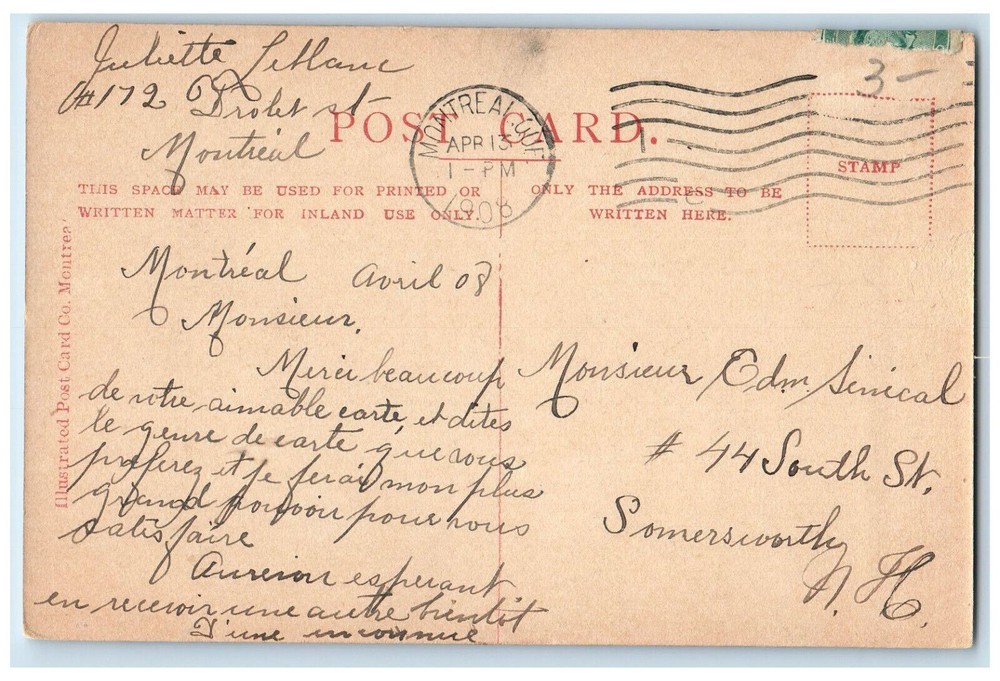 Juliette Leblanc
#172 Drolet st
Montréal
POST CARD.
MONTREAL, QUE.
APR 13
1 - PM
1908
3 -
STAMP
THIS SPACE MAY BE USED FOR PRINTED OR
WRITTEN MATTER FOR INLAND USE ONLY.
ONLY THE ADDRESS TO BE
WRITTEN HERE.
Illustrated Post Card Co. Montreal
Montréal Avril 08
Monsieur.
Merci beaucoup
de votre aimable carte, et dites
le genre de carte que vous
préferez et je ferai mon plus
grand pouvoir pour vous
satisfaire
Aurevoir esperant
en recevoir une autre bientôt
D'une inconnue
Monsieur Edm. Sénécal
# 44 South St.
Somersworth
N. H.